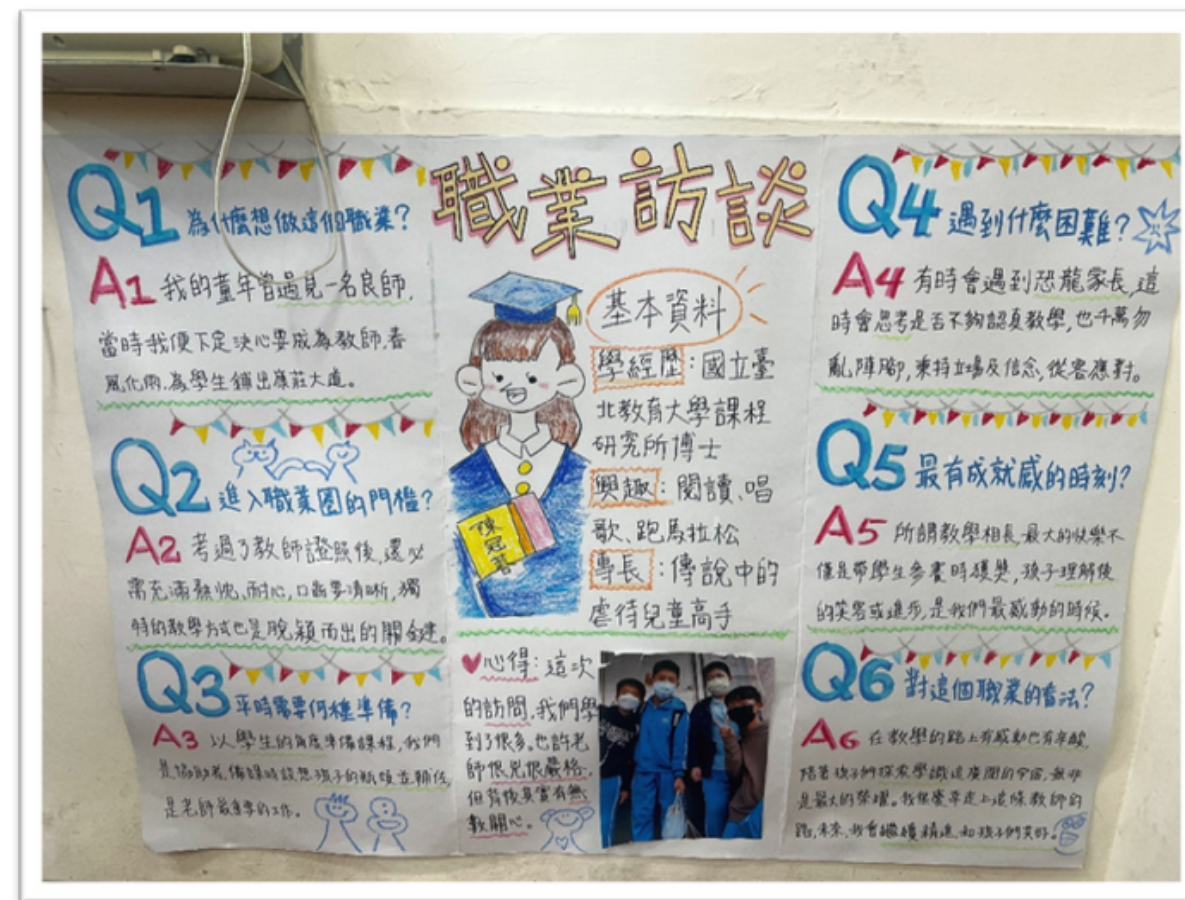 職業訪談
Q1 為什麼想做這個職業?
A1 我的童年曾遇見一名良師,
當時我便下定決心要成為教師,春
風化雨,為學生鋪出康莊大道。
Q2 進入職業圈的門檻?
A2 考過了教師證照後,還必
需充滿熱忱、耐心,口齒要清晰,獨
特的教學方式也是脫穎而出的關鍵。
Q3 平時需要何種準備?
A3 以學生的角度準備課程,我們
是協助者,備課時設想孩子的
是老師最重要的工作。
基本資料
學經歷:國立臺
北教育大學課程
研究所博士
興趣:閱讀、唱
歌、跑馬拉松
專長:傳說中的
虐待兒童高手
陳
冠
♥心得:這次
的訪問,我們學
到了很多。也許老
師很兇很嚴格,
但背後其實有無
數關心。
Q4 遇到什麼困難?
A4 有時會遇到恐龍家長,這
時會思考是否不夠認真教學,也千萬勿
亂陣腳,秉持立場及信念,從容應對。
Q5 最有成就感的時刻?
A5 所謂教學相長,最大的快樂不
僅是帶學生參賽時獲獎,孩子理解後
的笑容或進步,是我們最感動的時候。
Q6 對這個職業的看法?
A6 在教學的路上有感動也有辛酸,
陪著孩子們探索學識這廣闊的宇宙,無非
是最大的榮耀。我很榮幸走上這條教師的
路,未來,我會繼續精進,和孩子們共好。